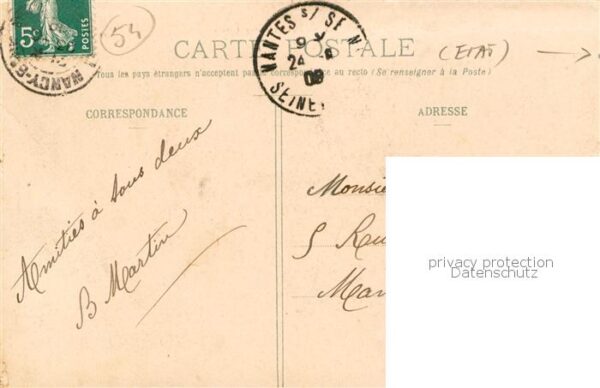 5c
POSTES
54
NANCY
MANTES S/ SEINE
9
24
08
SEINE
CARTE POSTALE
(ETAT)
Tous les pays étrangers n'acceptent pas la correspondance au recto (Se renseigner à la Poste)
CORRESPONDANCE
ADRESSE
Amitiés à tous deux
B Martin
Monsie
5 Rue
Man
privacy protection
Datenschutz